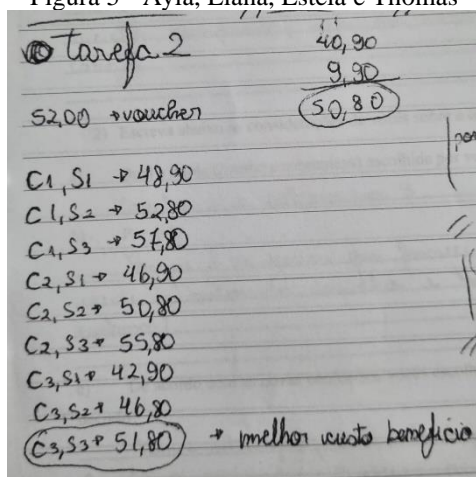 Figura 3 – Ayla, Liana, Estela e Thomas
Tarefa 2
40,90
9,90
50,80
52,00 → voucher
C1, S1 → 48,90
C1, S2 → 52,80
C1, S3 → 57,80
C2, S1 → 46,90
C2, S2 → 50,80
C2, S3 → 55,80
C3, S1 → 42,90
C3, S2 → 46,80
C3, S3 → 51,80 → melhor custo beneficio